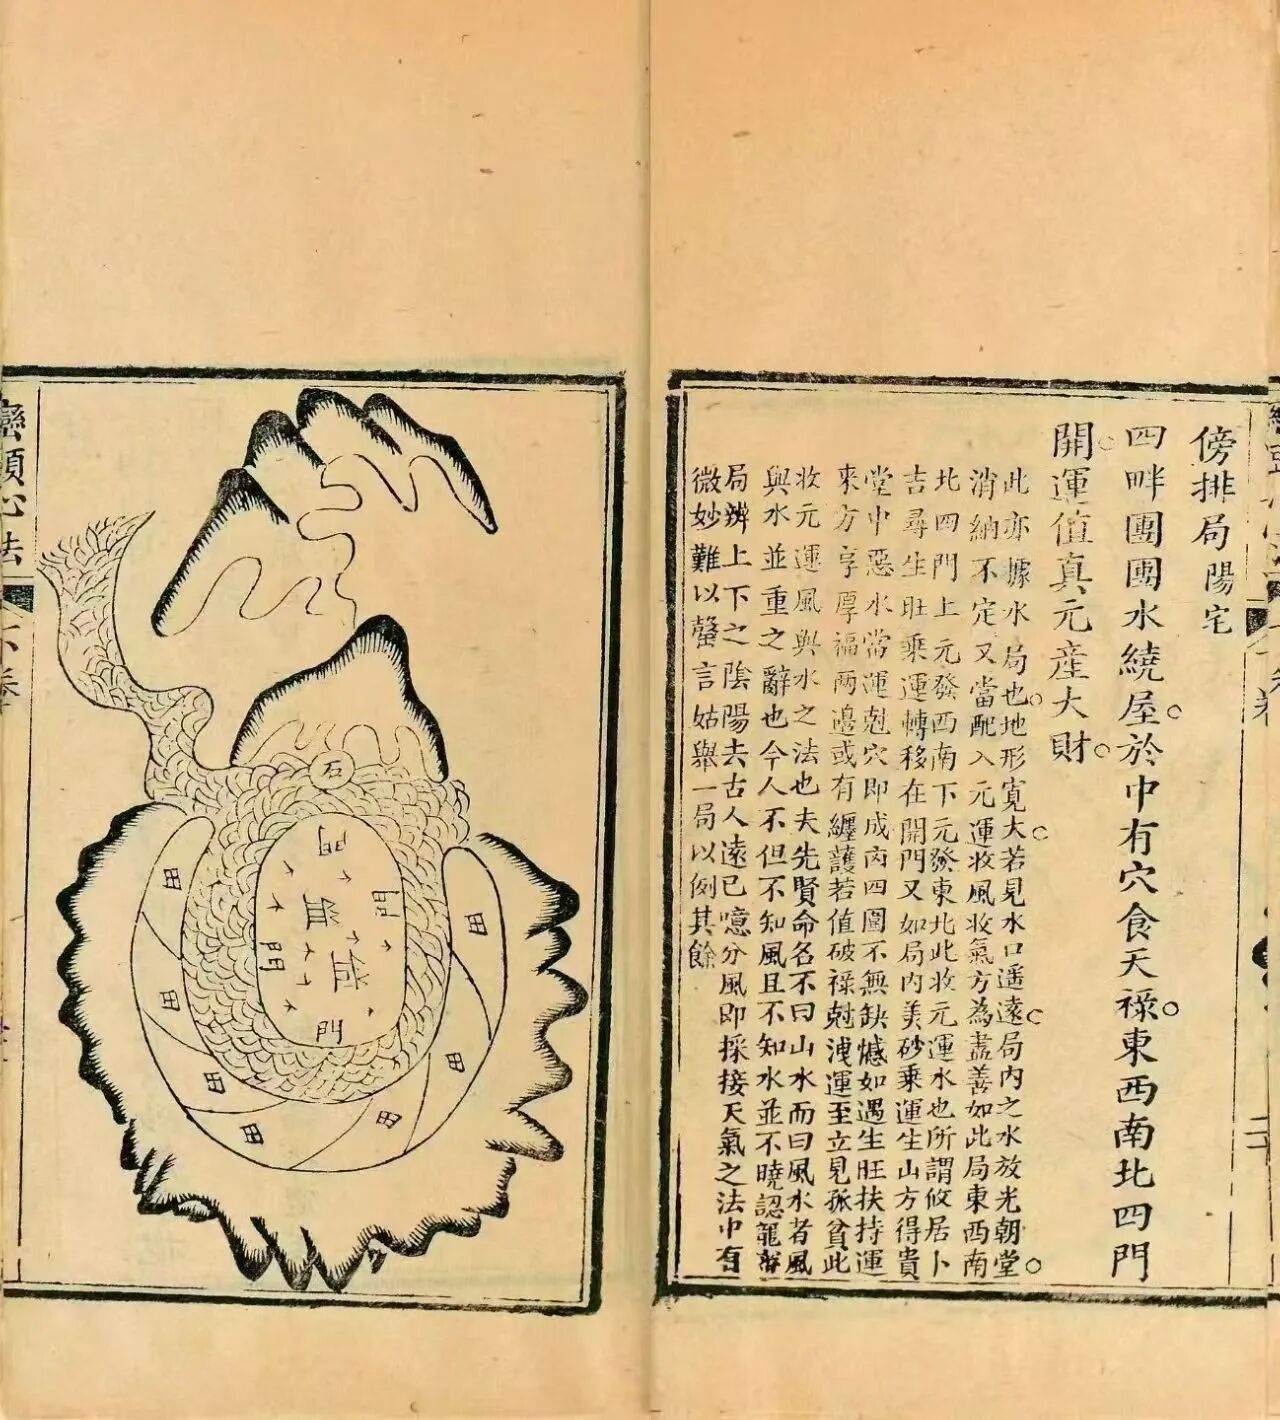 傍排局陽宅
四畔團團水繞屋。於中有穴食天祿。東西南北四門
開。運值真元產大財。
此亦據水局也。地形寬大。若見水口遙遠。局內之水放光朝堂。
消納不定又當配入元運收風收氣方為盡善如此局東西南
北四門上元發西南下元發東北此收元運水也所謂攸居卜
吉尋生旺乘運轉移在開門又如局內美砂乘運生山方得貴
堂中惡水當運剋穴即成丙四圍不無缺憾如遇生旺扶持運
來方享厚福兩邊或有纏護若值破祿尅洩運至立見孤貧此
收元運風與水之法也夫先賢命名不曰山水而曰風水者風
與水並重之辭也今人不但不知風且不知水並不曉認龍
局辨上下之陰陽去古人遠已噫分風即採接天氣之法中有
微妙難以罄言姑舉一局以例其餘
二十
石
門
門
門
門
田
田
田
田
田
田
田
巒頭心法
下卷